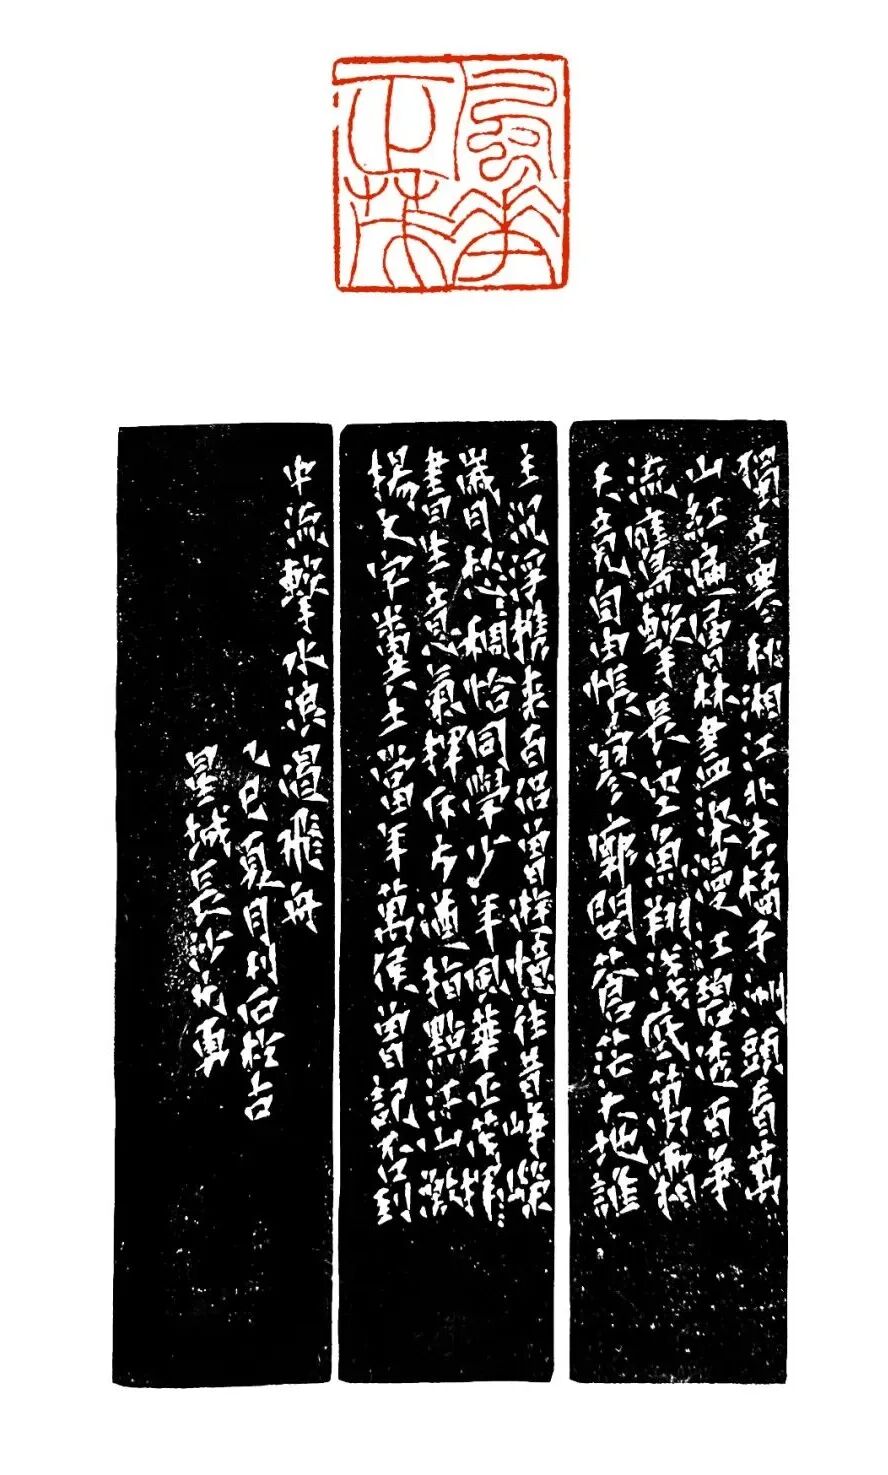 風華
正茂
獨立寒秋湘江北去橘子洲頭看萬
山紅遍層林盡染漫江碧透百爭
流鷹擊長空魚翔淺底萬霜
天競自由悵寥廓問蒼茫大地誰
主沉浮攜來百侶曾遊憶往昔崢嶸
歲月愁稠恰同學少年風華正茂揮
書生意氣揮斥方遒指點江山激
揚文字糞土當年萬侯曾記否到
中流擊水浪遏飛舟
乙巳夏月刊石於古
星城長沙勇